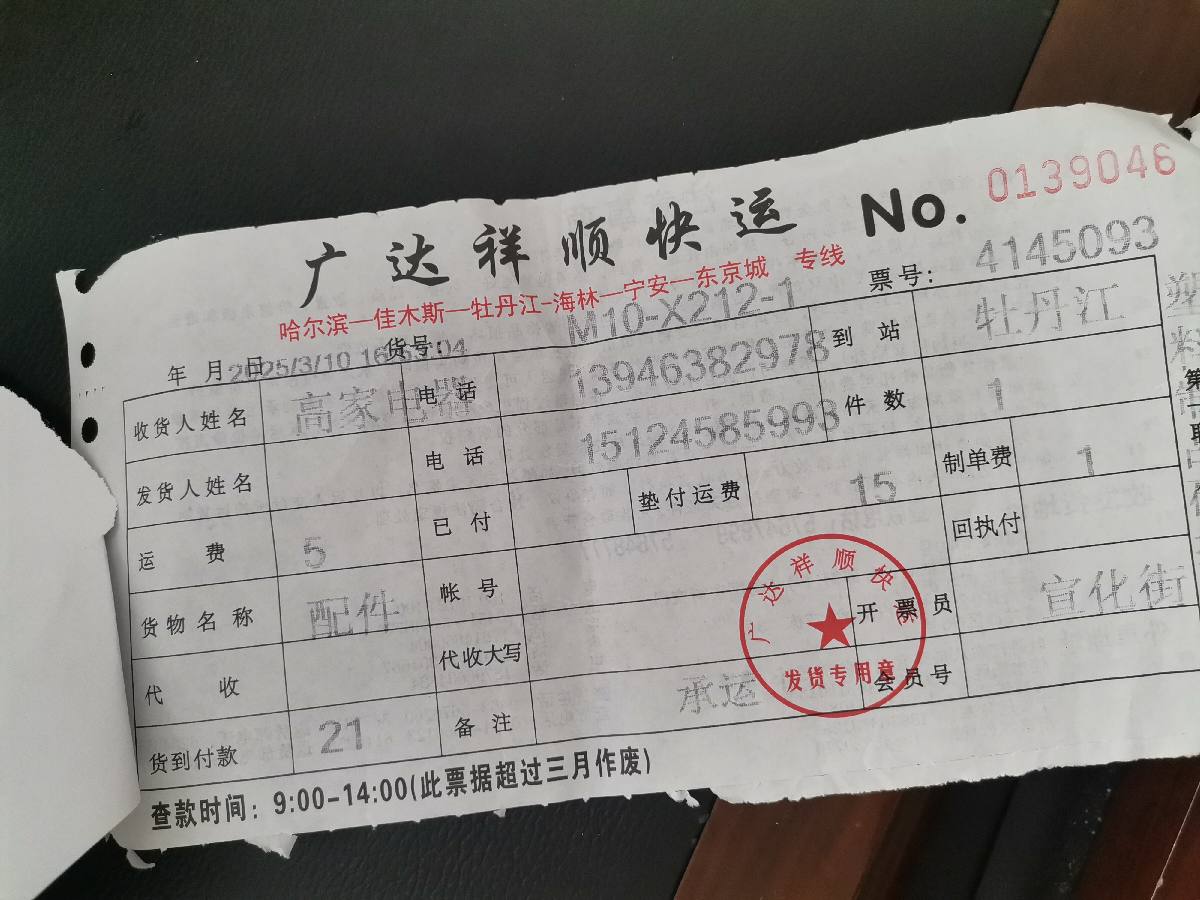 广达祥顺快运 No. 0139046
哈尔滨—佳木斯—牡丹江-海林—宁安—东京城 专线
票号: 4145093
年 月 日 2025/3/10 货号: M10-X212-1
收货人姓名 高家电器 电话 13946382978 到站 牡丹江
发货人姓名 电话 15124585993 件数 1
运费 5 已付 垫付运费 15 制单费 1
货物名称 配件 帐号 回执付
代收 代收大写 开票员 宣化街
货到付款 21 备注 承运 会员号
广达祥顺快运
发货专用章
查款时间: 9:00-14:00(此票据超过三月作废)